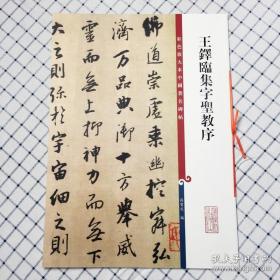 王鐸臨集字聖教序
彩色放大本中國著名碑帖
佛道崇虛乘幽控寂弘
濟萬品典御十方舉威
靈而無上抑神力而無下
大之則彌於宇宙細之則